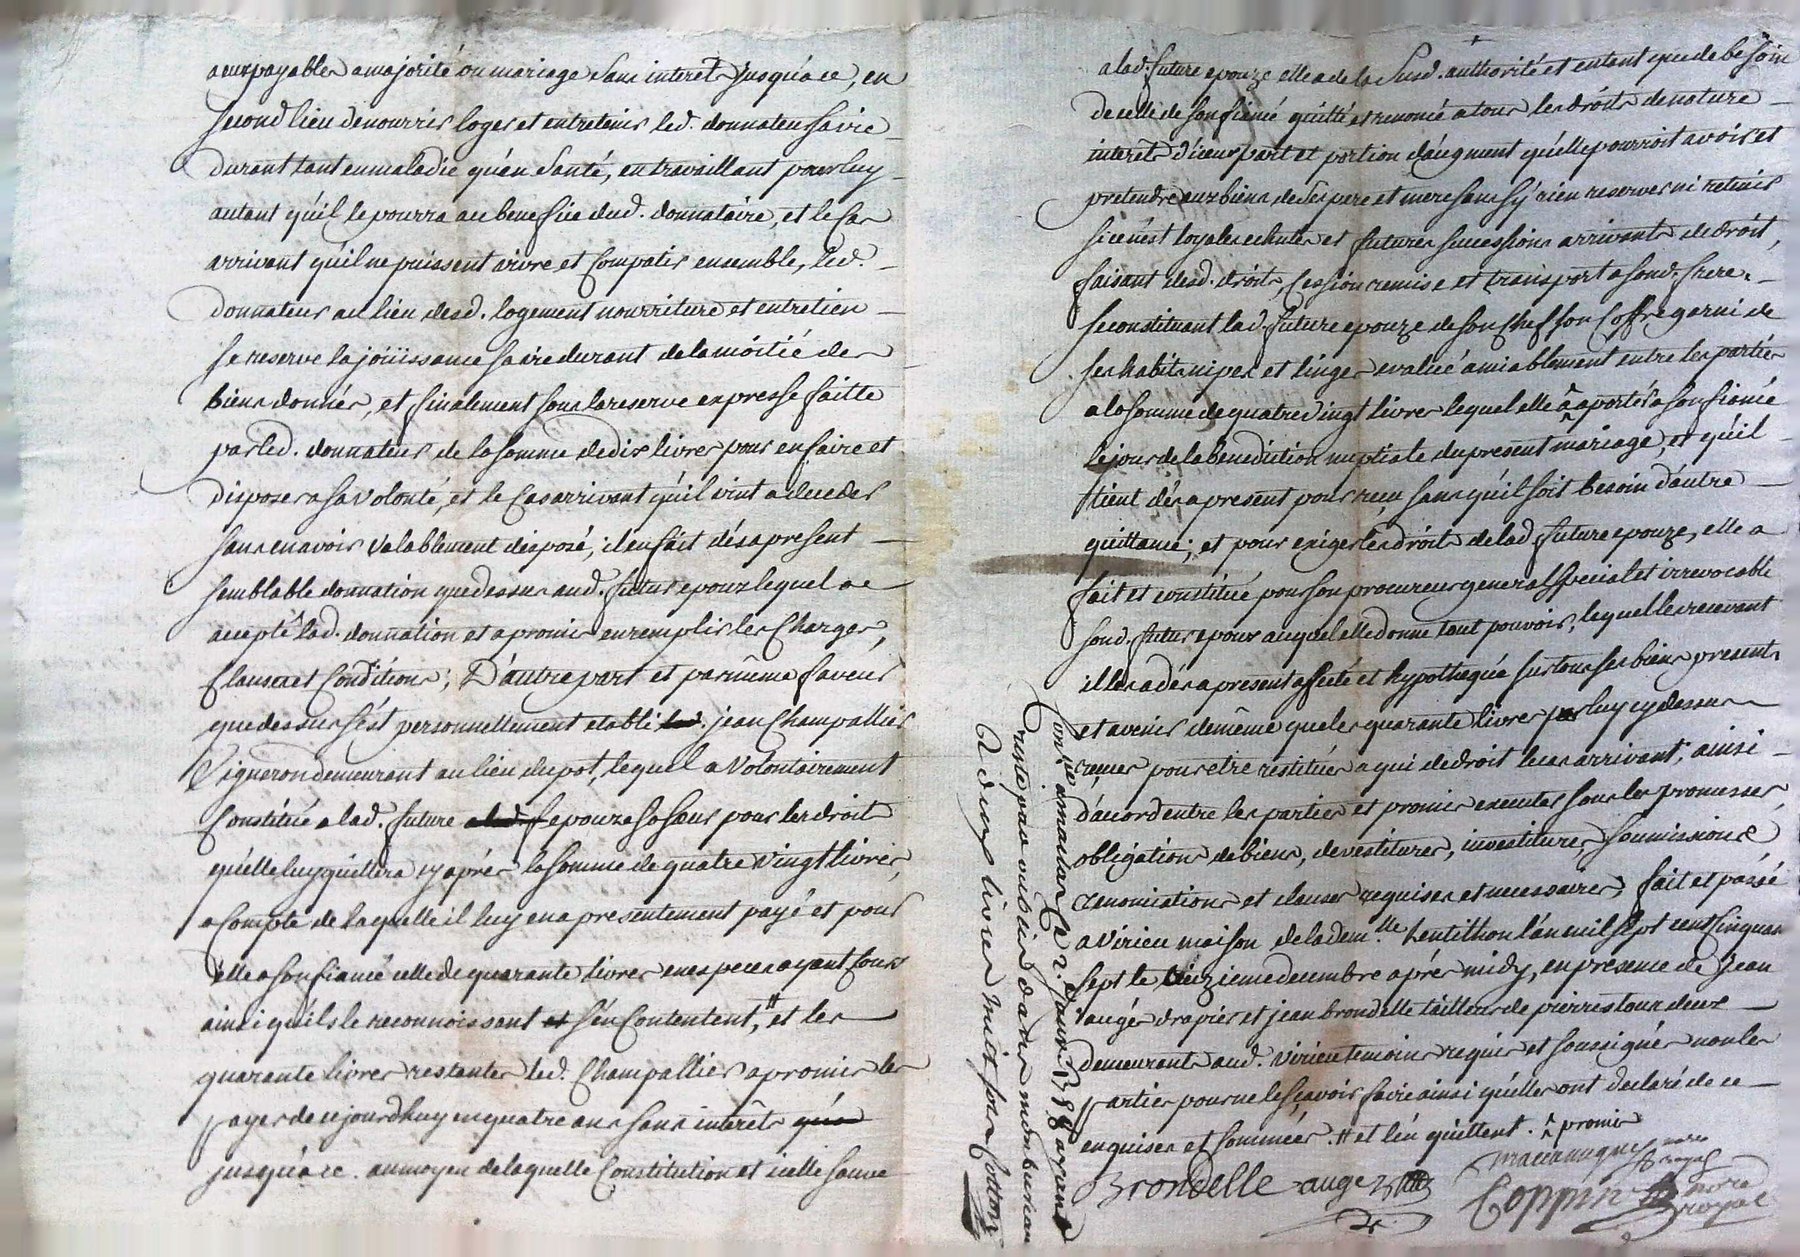 aeux payables a majorité ou mariage sans interet jusqu'a ce, en
second lieu de nourrir loger et entretenir led. donnateur sa vie
durant tant en maladie qu'en santé, en travaillant pour luy
autant qu'il le pourra au benefice dud. donnataire, et le cas
arrivant qu'il ne puissent vivre et compatir ensemble, led.
donnateur au lieu desd. logement nourriture et entretien
se reserve la joüissance sa vie durant de la moitié des
biens donnés, et finalement sous la reserve expresse faitte
par led. donnateur de la somme de dix livres pour en faire et
disposer a sa volonté, et le cas arrivant qu'il vint a deceder
sans en avoir valablement disposé, il en fait dés a present
semblable donnation que dessus aud. futur epoux lequel a
accepté lad. donnation et a promis en remplir les charges,
clauses et conditions; D'autre part et par même faveur
que dessus s'est personnellement etabli jean Champallier
Vigneron demeurant au lieu du pot, lequel a volontairement
Constitué a lad. future epouze sa sœur pour les droits
qu'elle luy quittera cy aprés la somme de quatre vingt livres,
a compte de laquelle il luy en a presentement payé et pour
elle a son fiancé celle de quarante livres en especes ayant cours
ainsi qu'ils le reconnoissent s'en contentent, # et les
quarante livres restantes led. Champallier a promis les
payer de ce jourdhuy en quatre ans sans interêts
jusqu'a ce. au moyen de laquelle Constitution et icelle sauve
a lad. future epouze elle a de la susd. authorité et entant que de besoin
de celle de son fiancé quitté et renoncé a tous les droits de nature
interêts d'iceux part et portion d'augment qu'elle pourroit avoir et
pretendre aux biens de ses pere et mere sans s'y rien reserver ni retenir
si ce n'est loyales echutes et futures successions arrivants de droit,
faisant desd. droits, cession remise et transport a sond. frere.
se constituant lad. future epouze de son chef son Coffre garni de
ses habits nipes et linges evalué amiablement entre les parties
a la somme de quatre vingt livres lequel elle ^ aporter a son fiancé
le jour de la benediction nuptiale du present mariage, et qu'il
tient dés a present pour reçu sans qu'il soit besoin d'autre
quittance; et pour exiger les droits de lad. future epouze, elle a
fait et constitué pour son procureur general special et irrevocable
sond. futur epoux auquel elle donne tout pouvoir, lequel les recevant
illes a dés a present affecté et hypothequé sur tous ses biens presents
et avenir de même que les quarante livres par luy cy dessus
reçues pour etre restitués a qui de droit le cas arrivant, ainsi
d'accord entre les parties et promis executer sous les promesses,
obligations de biens, devestitures, investitures, soumissions
renonciations et clauses requises et necessaires, fait et passé
a Virieu maison de la demlle. Lentithon l'an mil sept cent cinquan
sept le decembre aprés midy, en presence de Jean
augé drapier et jean brondelle tailleur de pierres tous deux
demeurants aud. Virieu temoins requis et soussignés non les
parties pour ne le sçavoir faire ainsi qu'elles ont declaré de ce
enquises et sommées. # et l'en quittent. ^ promis
Brondelle augé
Coppin nore royal
Conlé a 1758 ayant
reste pour
a deux livres huit sols Cotton